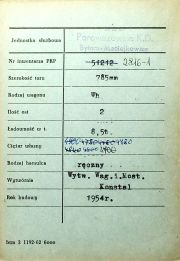 Jednostka służbowa Parowozownia K.D.
Bytom Maciejkowice
Nr inwentarza PKP 51212 2816-1
Szerokość toru 785mm
Rodzaj wagonu Wh
Ilość osi 2
Ładowność w t 8,5t.
Ciężar własny
Rodzaj hamulca ręczny
Wytwórnia Wytw. Wag.i.Most.
Konstal
Rok budowy 1954r.